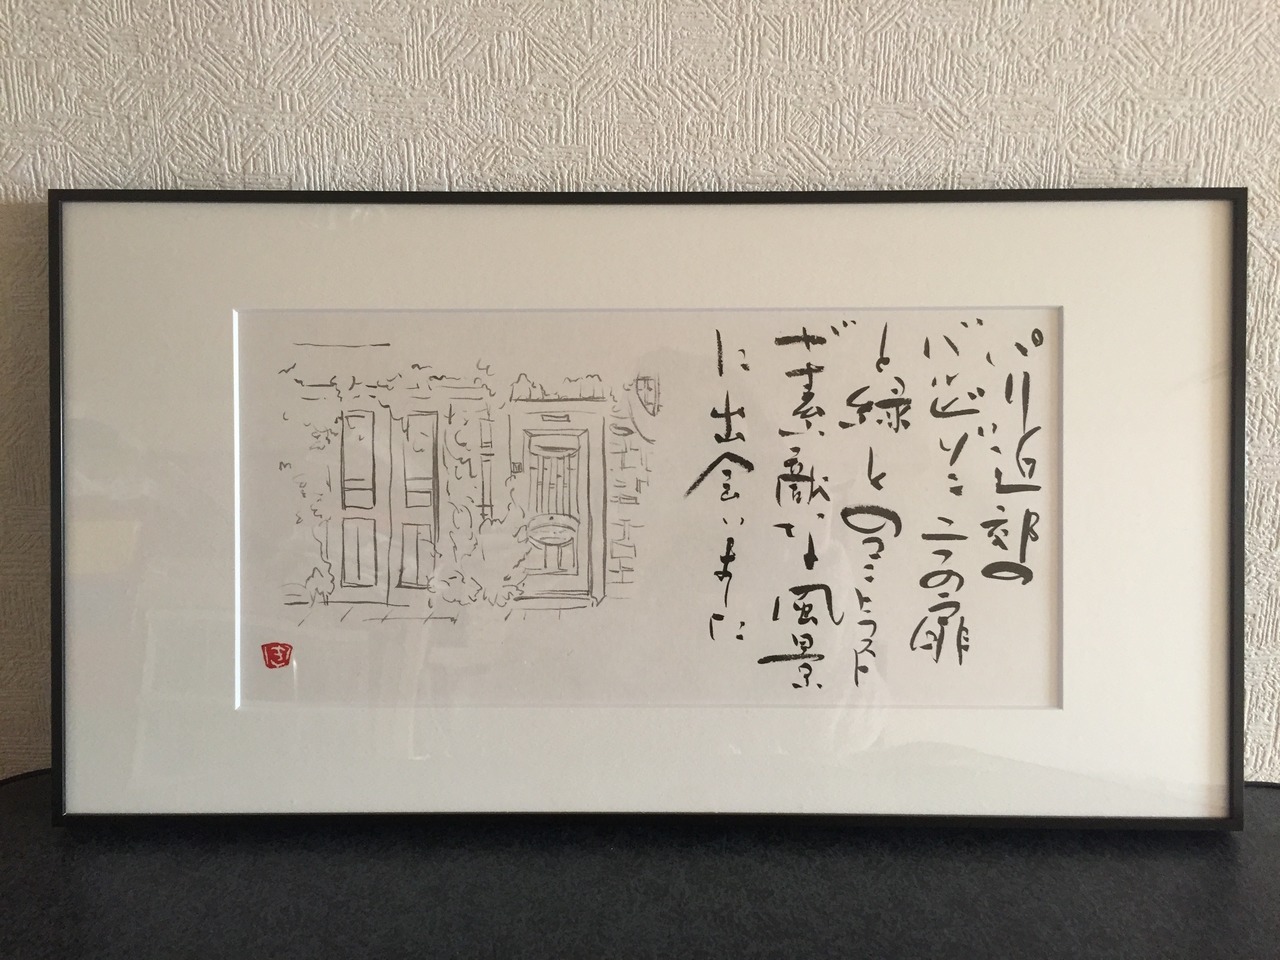 パリ近郊の
バルビゾン 二つの扉
と緑とのコントラスト
が素敵な風景
に出会いました